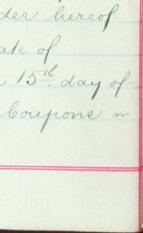 der hereof
ate of
15th day of
Coupons in